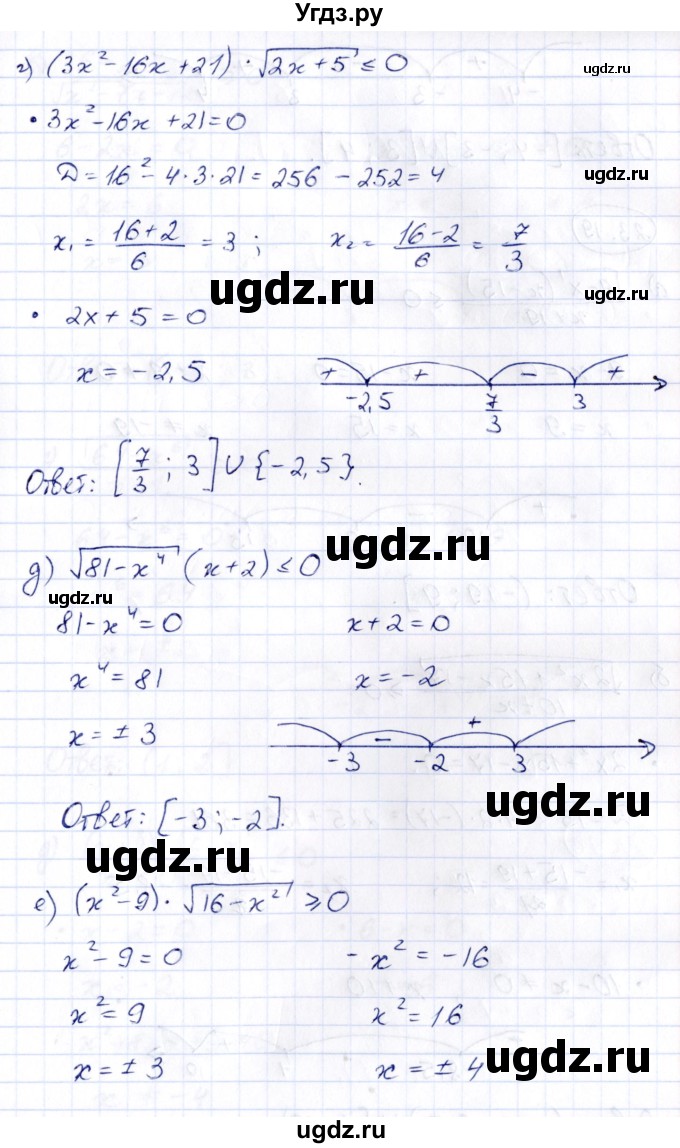 Угдз.ру
г) (3x² - 16x + 21) · √(2x + 5) ≤ 0
ugdz.ru
• 3x² - 16x + 21 = 0
D = 16² - 4·3·21 = 256 - 252 = 4
ugdz.ru
x₁ = (16+2)/6 = 3 ; x₂ = (16-2)/6 = 7/3
ugdz.ru ugdz.ru
• 2x + 5 = 0
x = -2,5
+ + - +
-2,5 7/3 3
Ответ: [7/3 ; 3] ∪ {-2,5}.
ugdz.ru
д) √(81 - x⁴) (x + 2) ≤ 0
ugdz.ru
81 - x⁴ = 0 x + 2 = 0
x⁴ = 81 x = -2
x = ± 3
- +
-3 -2 3
ugdz.ru
Ответ: [-3 ; -2].
ugdz.ru
е) (x² - 9) · √(16 - x²) ≥ 0
x² - 9 = 0 - x² = -16
x² = 9 x² = 16
x = ± 3 x = ± 4
ugdz.ru
ugdz.ru